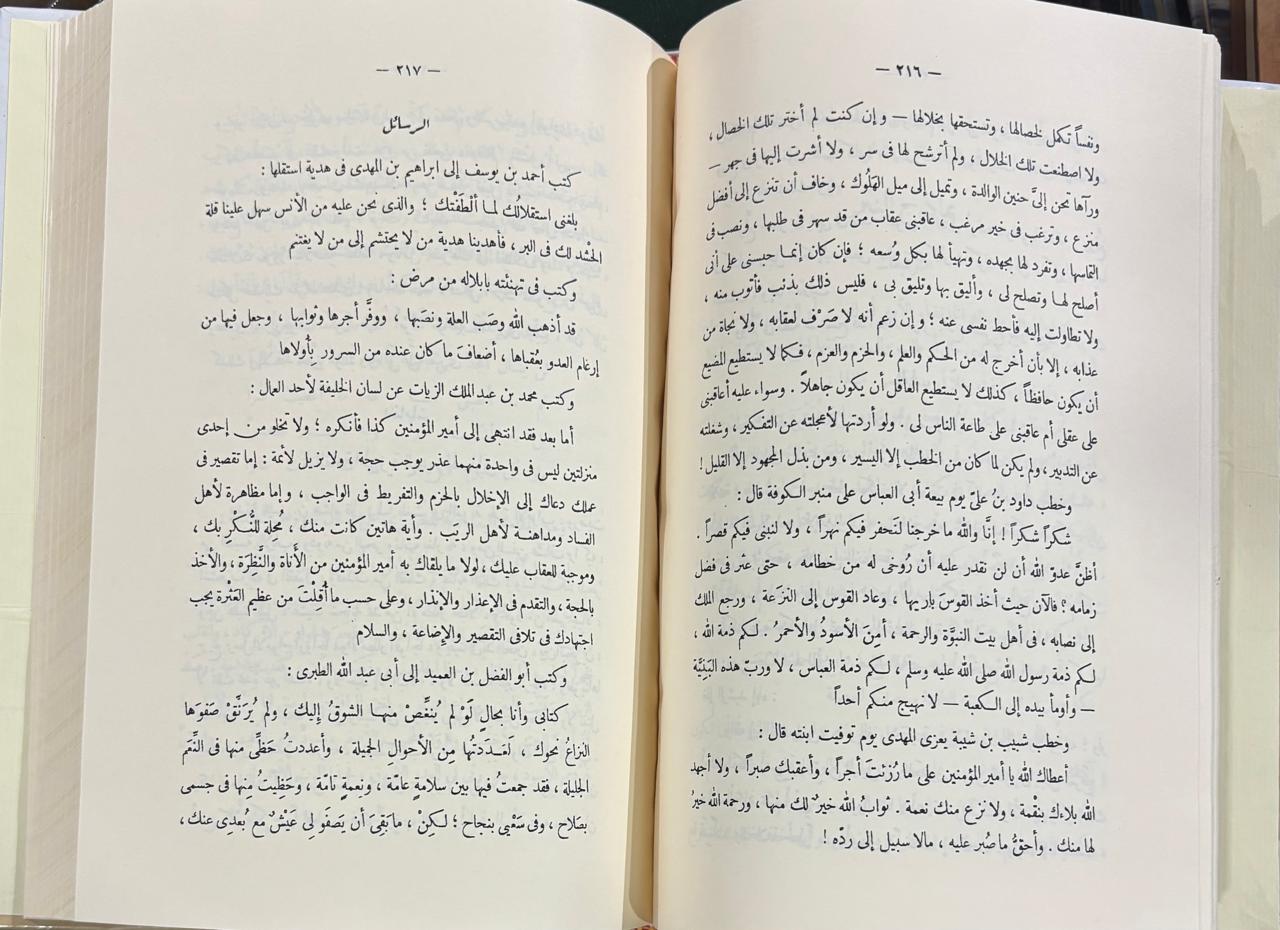 — ٢١٦ —
ونفساً تكمل لخصالها ، وتستحقها بخلالها — وإن كنت لم أختر تلك الخصال ،
ولا اصطنعت تلك الخلال ، ولم أترشح لها فى سر ، ولا أشرت إليها فى جهر —
ورآها تحن إلىَّ حنين الوالدة ، وتميل إلى ميل الهَلُوك ، وخاف أن تنزع إلى أفضل
منزع ، وترغب فى خير مرغب ، عاقبنى عقاب من قد سهر فى طلبها ، ونصب فى
التماسها ، وتفرد لها بجهده ، وتهيأ لها بكل وُسعه ؛ فإن كان إنما حبسنى على أنى
أصلح لها وتصلح لى ، وأليق بها وتليق بى ، فليس ذلك بذنب فأتوب منه ،
ولا تطاولت إليه فأحط نفسى عنه ؛ وإن زعم أنه لا صَرْف لعقابه ، ولا نجاة من
عذابه ، إلا بأن أخرج له من الحكم والعلم ، والحزم والعزم ، فكما لا يستطيع المضيع
أن يكون حافظاً ، كذلك لا يستطيع العاقل أن يكون جاهلاً . وسواء عليه أعاقبنى
على عقلى أم عاقبنى على طاعة الناس لى . ولو أردتها لأعجلته عن التفكير ، وشغلته
عن التدبير، ولم يكن لما كان من الخطب إلا اليسير ، ومن بذل المجهود إلا القليل !
وخطب داود بنُ علىّ يوم بيعة أبى العباس على منبر الكوفة قال :
شكراً شكراً ! إنَّا والله ما خرجنا لنَحفر فيكم نهراً ، ولا لنبنى فيكم قصراً .
أظنَّ عدوّ الله أن لن نقدر عليه أن رُوخى له من خطامه ، حتى عثر فى فضل
زمامه ؟ فالآن حيث أخذ القوسَ باريها ، وعاد القوس إلى النزَعة ، ورجع الملك
إلى نصابه ، فى أهل بيت النبوَّة والرحمة ، أمِنَ الأسودُ والأحمرُ . لكم ذمة الله ،
لكم ذمة رسول الله صلى الله عليه وسلم ، لكم ذمة العباس ، لا وربّ هذه البَنِيَّة
— وأومأ بيده إلى الكعبة — لا نهيج منكم أحداً
وخطب شبيب بن شيبة يعزى المهدى يوم توفيت ابنته قال :
أعطاك الله يا أمير المؤمنين على ما رُزئتَ أجراً ، وأعقبك صبراً ، ولا أجهد
الله بلاءك بنقْمة ، ولا نزع منك نعمة . ثوابُ الله خيرٌ لك منها ، ورحمة الله خيرٌ
لها منك . وأحقُّ ما صُبر عليه ، مالا سبيل إلى ردّه !
— ٢١٧ —
الرسائل
كتب أحمد بن يوسف إلى ابراهيم بن المهدى فى هدية استقلها :
بلغنى استقلالُك لما ألْطَفْتك ؛ والذى نحن عليه من الأنس سهل علينا قلة
الحَشْد لك فى البر ، فأهدينا هدية من لا يحتشم إلى من لا يغتنم
وكتب فى تهنئته بابلاله من مرض :
قد أذهب الله وصَب العلة ونصَبها ، ووفَّر أجرها وثوابها ، وجعل فيها من
إرغام العدو بعُقباها ، أضعافَ ما كان عنده من السرور بِأُولاها
وكتب محمد بن عبد الملك الزيات عن لسان الخليفة لأحد العمال :
أما بعد فقد انتهى إلى أمير المؤمنين كذا فأنكره ؛ ولا تخلو من إحدى
منزلتين ليس فى واحدة منهما عذر يوجب حجة ، ولا يزيل لأئمة : إما تقصير فى
عملك دعاك إلى الإخلال بالحزم والتفريط فى الواجب ، وإما مظاهرة لأهل
الفساد ومداهنة لأهل الريَب . وأية هاتين كانت منك ، مُحِلة للنُّكْرِ بك ،
وموجبة للعقاب عليك ، لولا ما يلقاك به أمير المؤمنين من الأَناة والنَّظِرَة ، والأخذ
بالحجة ، والتقدم فى الإعذار والإنذار ، وعلى حسب ما أُقِلْتَ من عظيم العَثْرة يجب
اجتهادك فى تلافى التقصير والإضاعة ، والسلام
وكتب أبو الفضل بن العميد إلى أبى عبد الله الطبرى :
كتابى وأنا بحالٍ لَوْ لم يُنغِّصْ منهـا الشوقُ إليك ، ولم يُرَنِّقْ صَفوَها
النزاعُ نحوك ، لَعَـدَدتُها مِن الأحوالِ الجميلة ، وأعددتُ حَظِّى منها فى النِّعَم
الجليلة ، فقد جمعتُ فيها بين سلامةٍ عامّة ، ونعِمةٍ تامّة ، وحَظِيتُ مِنها فى جسمى
بصَلاح ، وفى سَعْيى بنجاح ؛ لكِنْ ، ما بَقِىَ أن يَصَفوَ لِى عَيْشٌ مع بُعدِى عنك ،